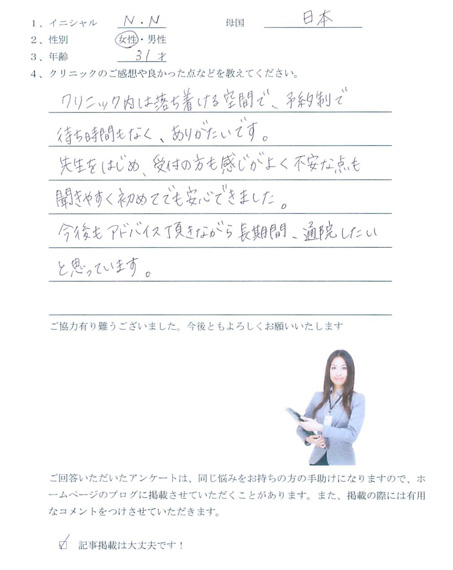 1、イニシャル N.N 母国 日本
2、性別 女性・男性
3、年齢 31才
4、クリニックのご感想や良かった点などを教えてください。
クリニック内は落ち着ける空間で、予約制で
待ち時間もなく、ありがたいです。
先生をはじめ、受付の方も感じがよく不安な点も
聞きやすく初めてでも安心できました。
今後もアドバイス頂きながら長期間、通院したい
と思っています。
ご協力有り難うございました。今後ともよろしくお願いいたします
ご回答いただいたアンケートは、同じ悩みをお持ちの方の手助けになりますので、ホ
ームページのブログに掲載させていただくことがあります。また、掲載の際には有用
なコメントをつけさせていただきます。
☑ 記事掲載は大丈夫です！